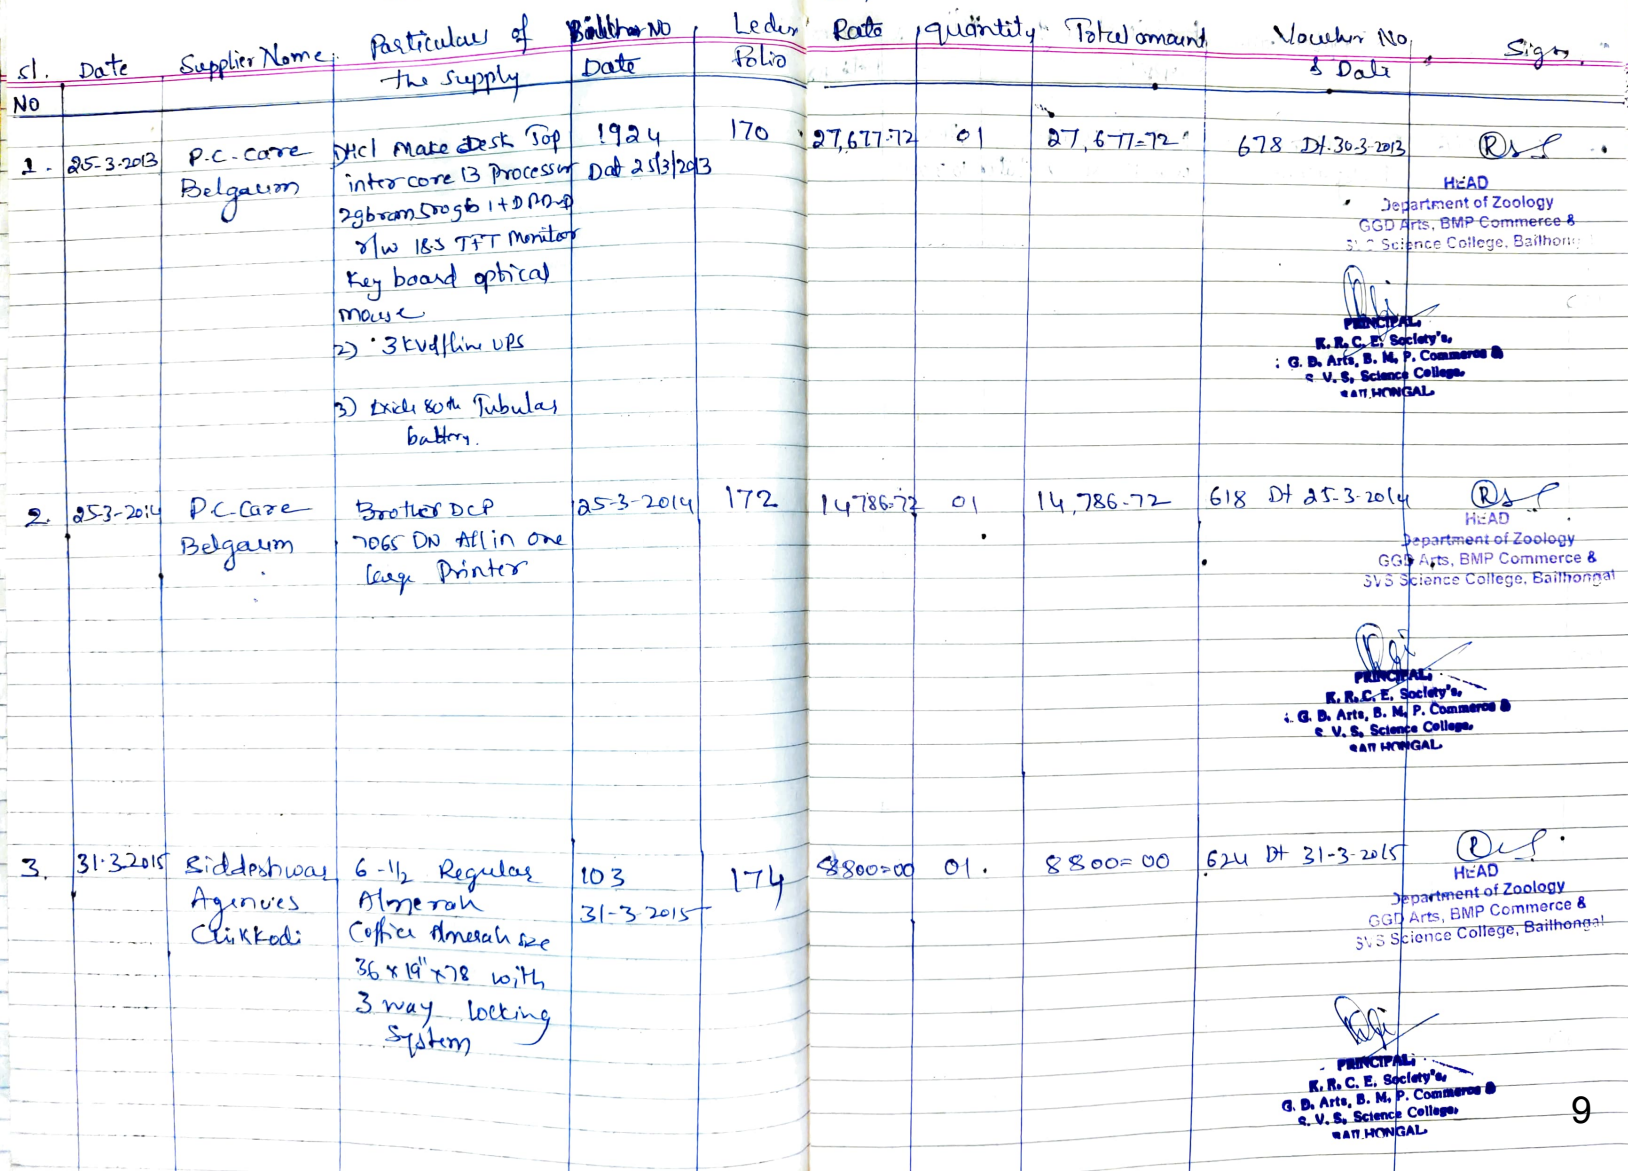 Sl. No
Date
Supplier Name
Particulars of the supply
No Date
Ledger Folio
Rate
quantity
Total amount
Voucher No & Date
Sign
1. 25-3-2013
P.C. Care
Belgaum
Hcl Make Desk Top
inter core I3 Processor
2gb ram 500gb
r/w 18.5 TFT Monitor
Key board optical
mouse
2) 3 KV offline UPS
3) Exide 80th Tubular
battery.
1924
Dat 25/3/2013
170
27,677-72
01
27,677=72
678 Dt.30-3-2013
HEAD
Department of Zoology
GGD Arts, BMP Commerce &
Science College, Bailhong
PRINCIPAL,
K. R. C. E. Society's,
G. D. Arts, B. M. P. Commerce &
V. S. Science College,
HONGAL
2. 25-3-2014
P.C. Care
Belgaum
Brother DCP
7065 DN All in one
Printer
25-3-2014
172
14786-72
01
14,786-72
618 Dt 25-3-2014
HEAD
Department of Zoology
GGD Arts, BMP Commerce &
SVS Science College, Bailhongal
PRINCIPAL,
K. R. C. E. Society's,
G. D. Arts, B. M. P. Commerce &
V. S. Science College,
HONGAL
3. 31-3-2015
Siddeshwar
Agencies
Chikkodi
6-1/2 Regular
Almerah
Coffice Almerah size
36 x 19" x 78 with
3 way locking
System
103
31-3-2015
174
8800=00
01.
8800=00
624 Dt 31-3-2015
HEAD
Department of Zoology
GGD Arts, BMP Commerce &
SVS Science College, Bailhongal
PRINCIPAL,
K. R. C. E. Society's,
G. D. Arts, B. M. P. Commerce &
S. V. S. Science College,
HONGAL
9